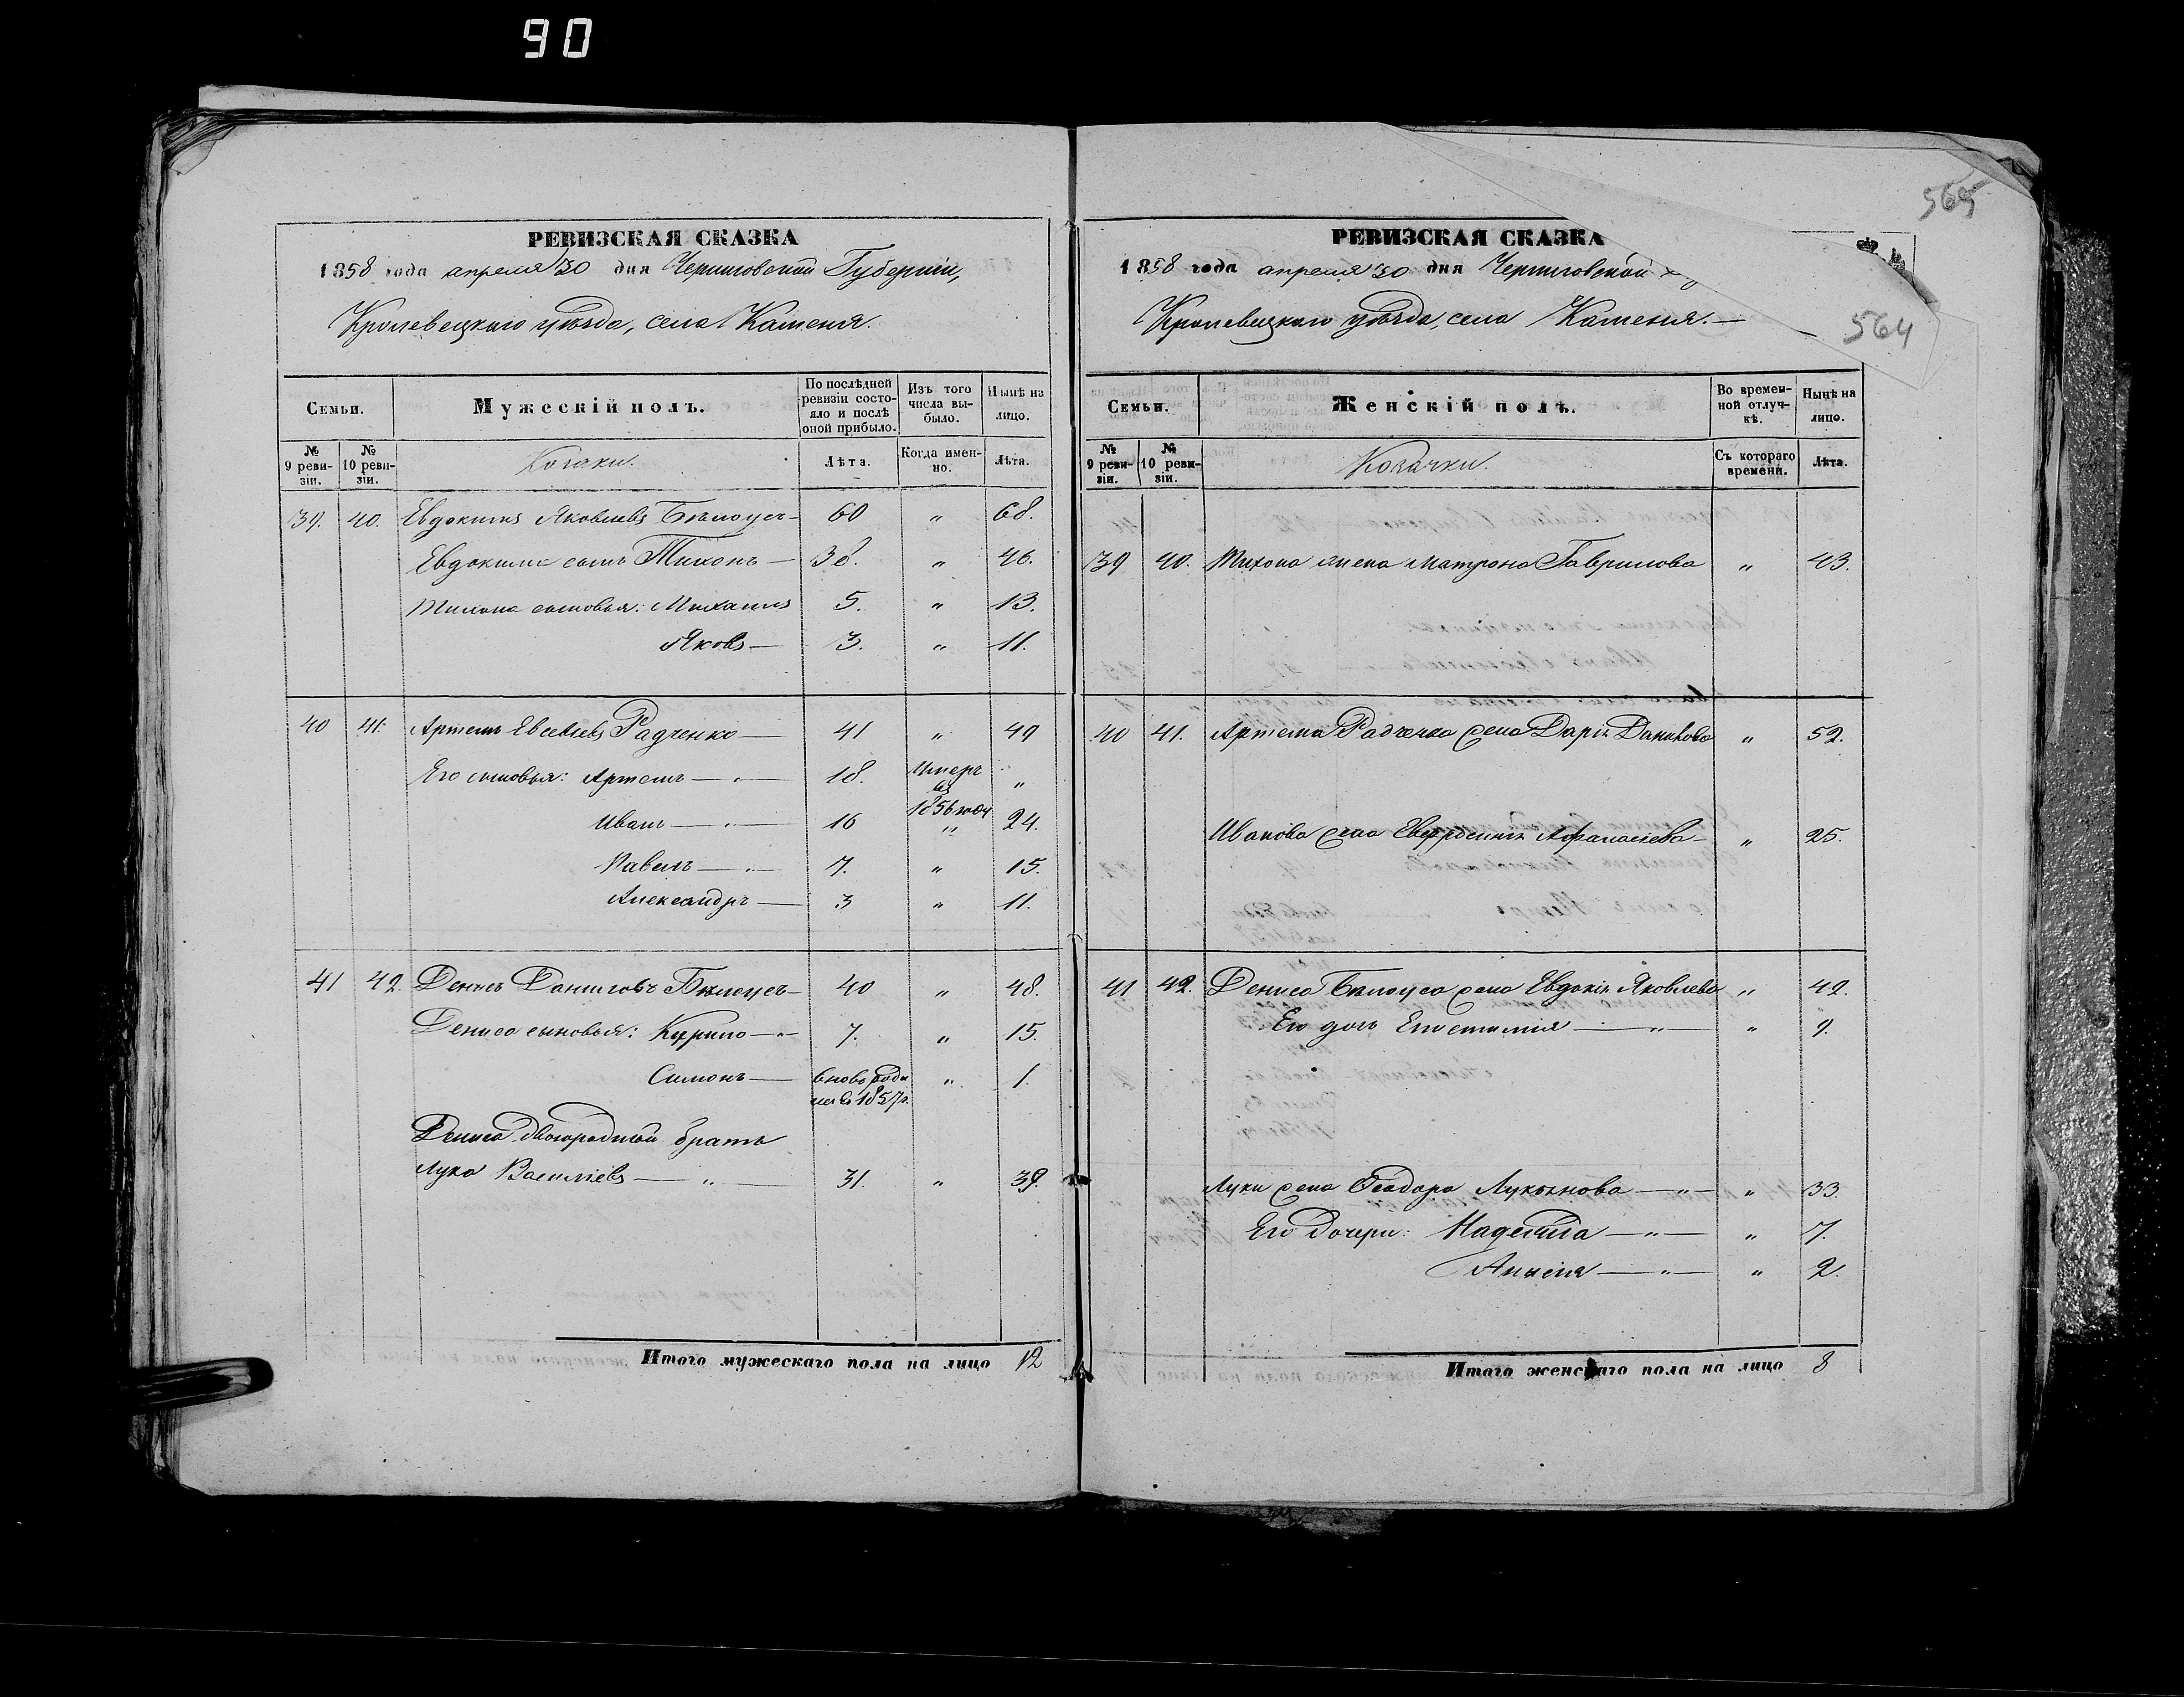 90
565
РЕВИЗСКАЯ СКАЗКА
1858 года апреля 30 дня Черниговской Губерніи,
Кролевецкаго уѣзда, села Каменя.
Семьи.
Мужескій полъ.
По послѣдней ревизіи состояло и послѣ оной прибыло.
Изъ того числа выбыло.
Нынѣ на лицо.
№ 9 ревизіи.
№ 10 ревизіи.
Козаки.
Лѣта.
Когда именно.
Лѣта.
39. 40. Евдокимъ Яковлевъ Бѣлоусъ — 60 " 68.
Евдокима сынъ Тихонъ — 38. " 46.
Тихона сыновья: Михаилъ 5. " 13.
Яковъ — 3. " 11.
40 41. Артемъ Евсеевъ Радченко — 41 " 49
Его сыновья: Артемъ — " — 18. Умеръ въ 1856 году "
Иванъ — " — 16 " 24.
Павелъ — " — 7. " 15.
Александръ — 3 " 11.
41 42. Денисъ Даниловъ Бѣлоусъ — 40 " 48.
Дениса сыновья: Кирило — " 7. " 15.
Симонъ — вновь роди лся въ 1857 г. " 1.
Дениса двоюродный братъ
Лука Василіевъ — " — 31. " 39.
Итого мужескаго пола на лицо 12
РЕВИЗСКАЯ СКАЗКА
1858 года апреля 30 дня Черниговской
Кролевецкаго уѣзда, села Каменя. —
564
Семьи.
Женскій полъ.
Во временной отлучкѣ.
Нынѣ на лицо.
№ 9 ревизіи.
№ 10 ревизіи.
Козачки.
Съ котораго времени.
Лѣта.
39 40. Тихона жена Матрона Гаврилова " 43.
40 41. Артема Радченка жена Дарія Данилова " 52.
Иванова жена Евфросинія Афанасіева — " 25.
41 42. Дениса Бѣлоуса жена Евдокія Яковлева " 42.
Его дочь — " — " 9.
Луки жена Феодора Лукьянова — " — " 33.
Его дочери: Надежда — " — " 7.
Анисія — " — " 2.
Итого женскаго пола на лицо 8